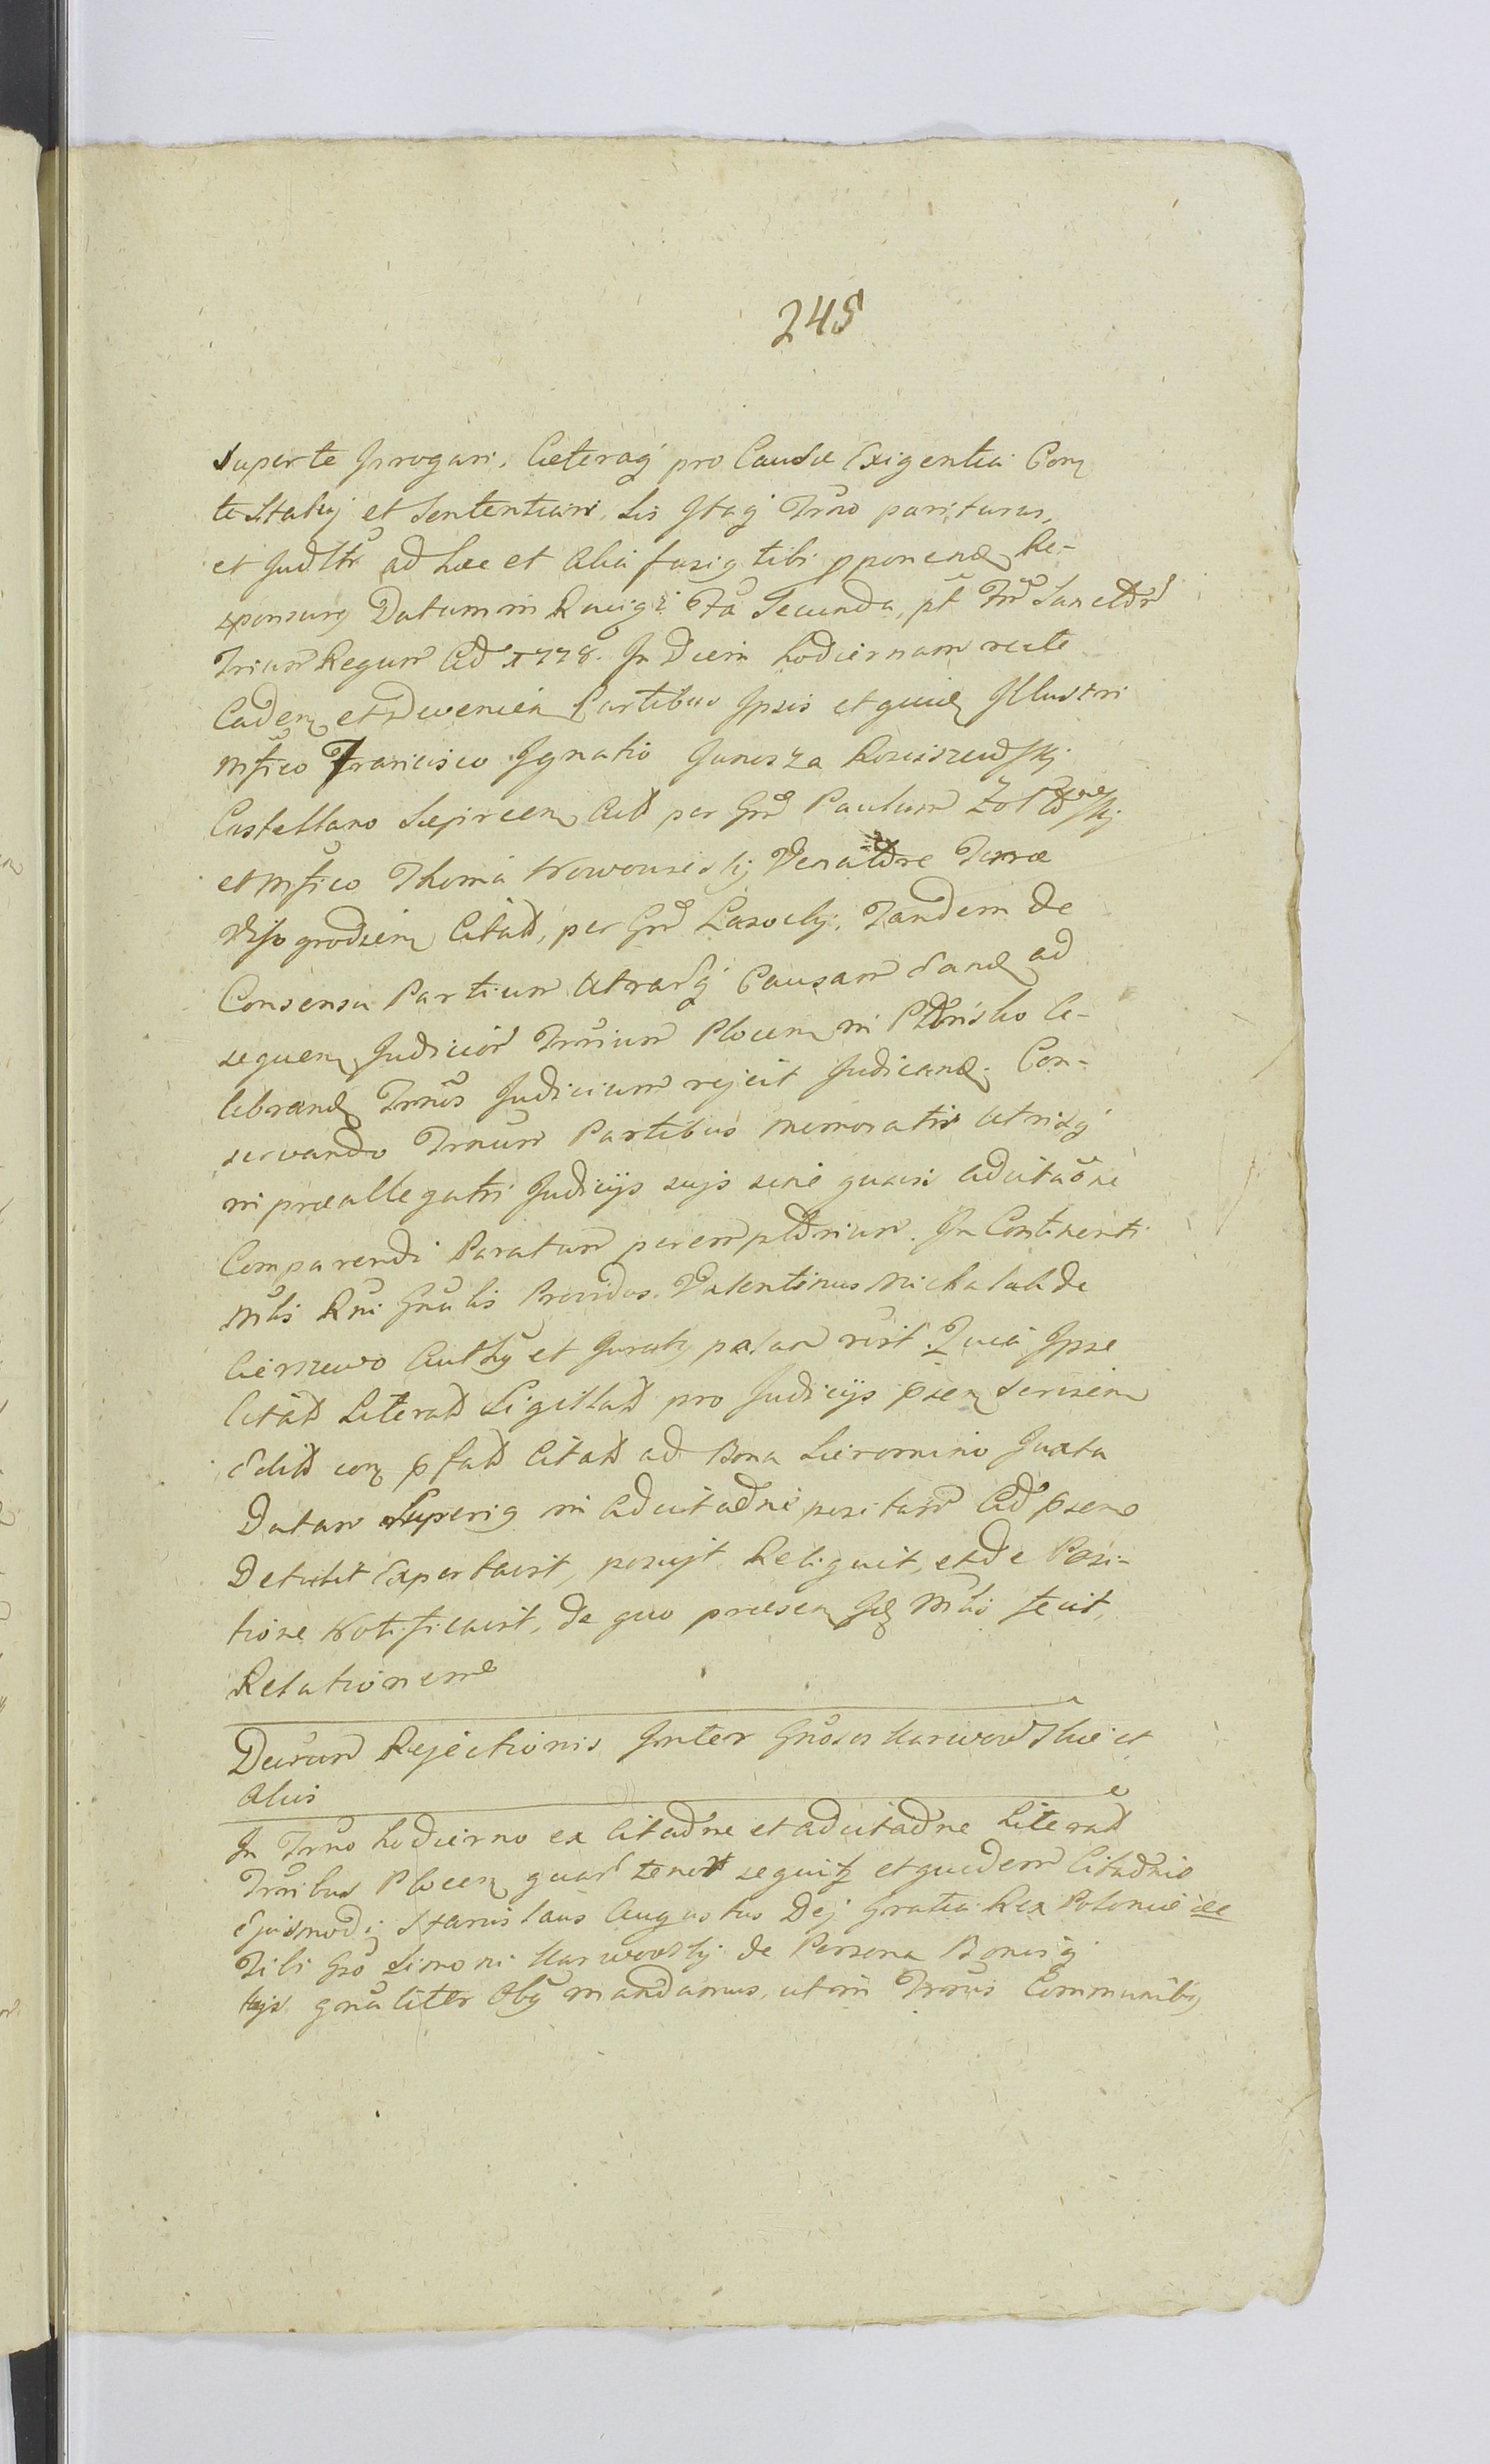 245
super te Irrogari, Cæteraq pro Causæ Exigentia Con
testatuj et Sententiari, Sis Itaq Trno pariturus,
et Judltr ad hæc et Alia fusig tibi pponend Re-
sponsurg Datum in Raciąż Fa Secunda, pt Frm Sanctor
Trium Regum AD 1778. In Diem hodiernam recte
Caden et Deveniên Partibus Ipsis et quid Illustri
Mfico Francisco Ignatio Junosza Kosciszewskj
Castellano Sieprcen Act per Gnd Paulum Żółtowskj
et Mfico Thoma Nowowieiskj Venatore Terræ
Vissogrodien Citat, per Gnd Lasockj, Tandem de
Consensu Partium Utrarq Causam Eand ad
sequen Judicior Trrium Plocen in Płońsko Ce-
lebrand Trmos Judicium rejcit Judicand. Con-
servando Trnum Partibus memoratis Utrisq
in præallegatis Judicijs suis sine quavis adcitaône
Comparendi Paratum peremptorium. In Continenti
Mtlis Rni Gnalis Providus Valentinus Michalak de
Cierszewo Authg et Juratg palam rcvit Quia Ipse
Citat Literat Sigillat pro Judicijs psen Servien
Edit con pfat Citat ad Bona Sieromino Juxta
Datam Superig in Adcitaône positam AD psene
Detulit Exportavit, posuijt Reliquit, et de Posi-
tione Notificavit, de quo præsen Id Mtlis fecit,
Relationem
Decrum Rejectionis Inter Gnosos Karwowskie et
Alios
In Trno hodierno ex Citaône et adcitaône Literat
Trribus Plocen quar tenor sequitr et quidem Citaônis
Ejusmodi Stanislaus Augustus Dej Gratia Rex Poloniæ &c
Tibi Gso Simoni Karwowskj de Persona Bonisq
tujs gnaliter Obg mandamus, ut in Trnis Communibg